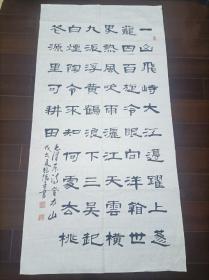 一山飛峙大江邊躍上蔥
蘢四百旋冷眼向洋看世
界熱風吹雨灑江天雲橫
九派浮黃鶴浪下三吳起
白煙陶令不知何處去桃
花源里可耕田
毛澤東詩登廬山